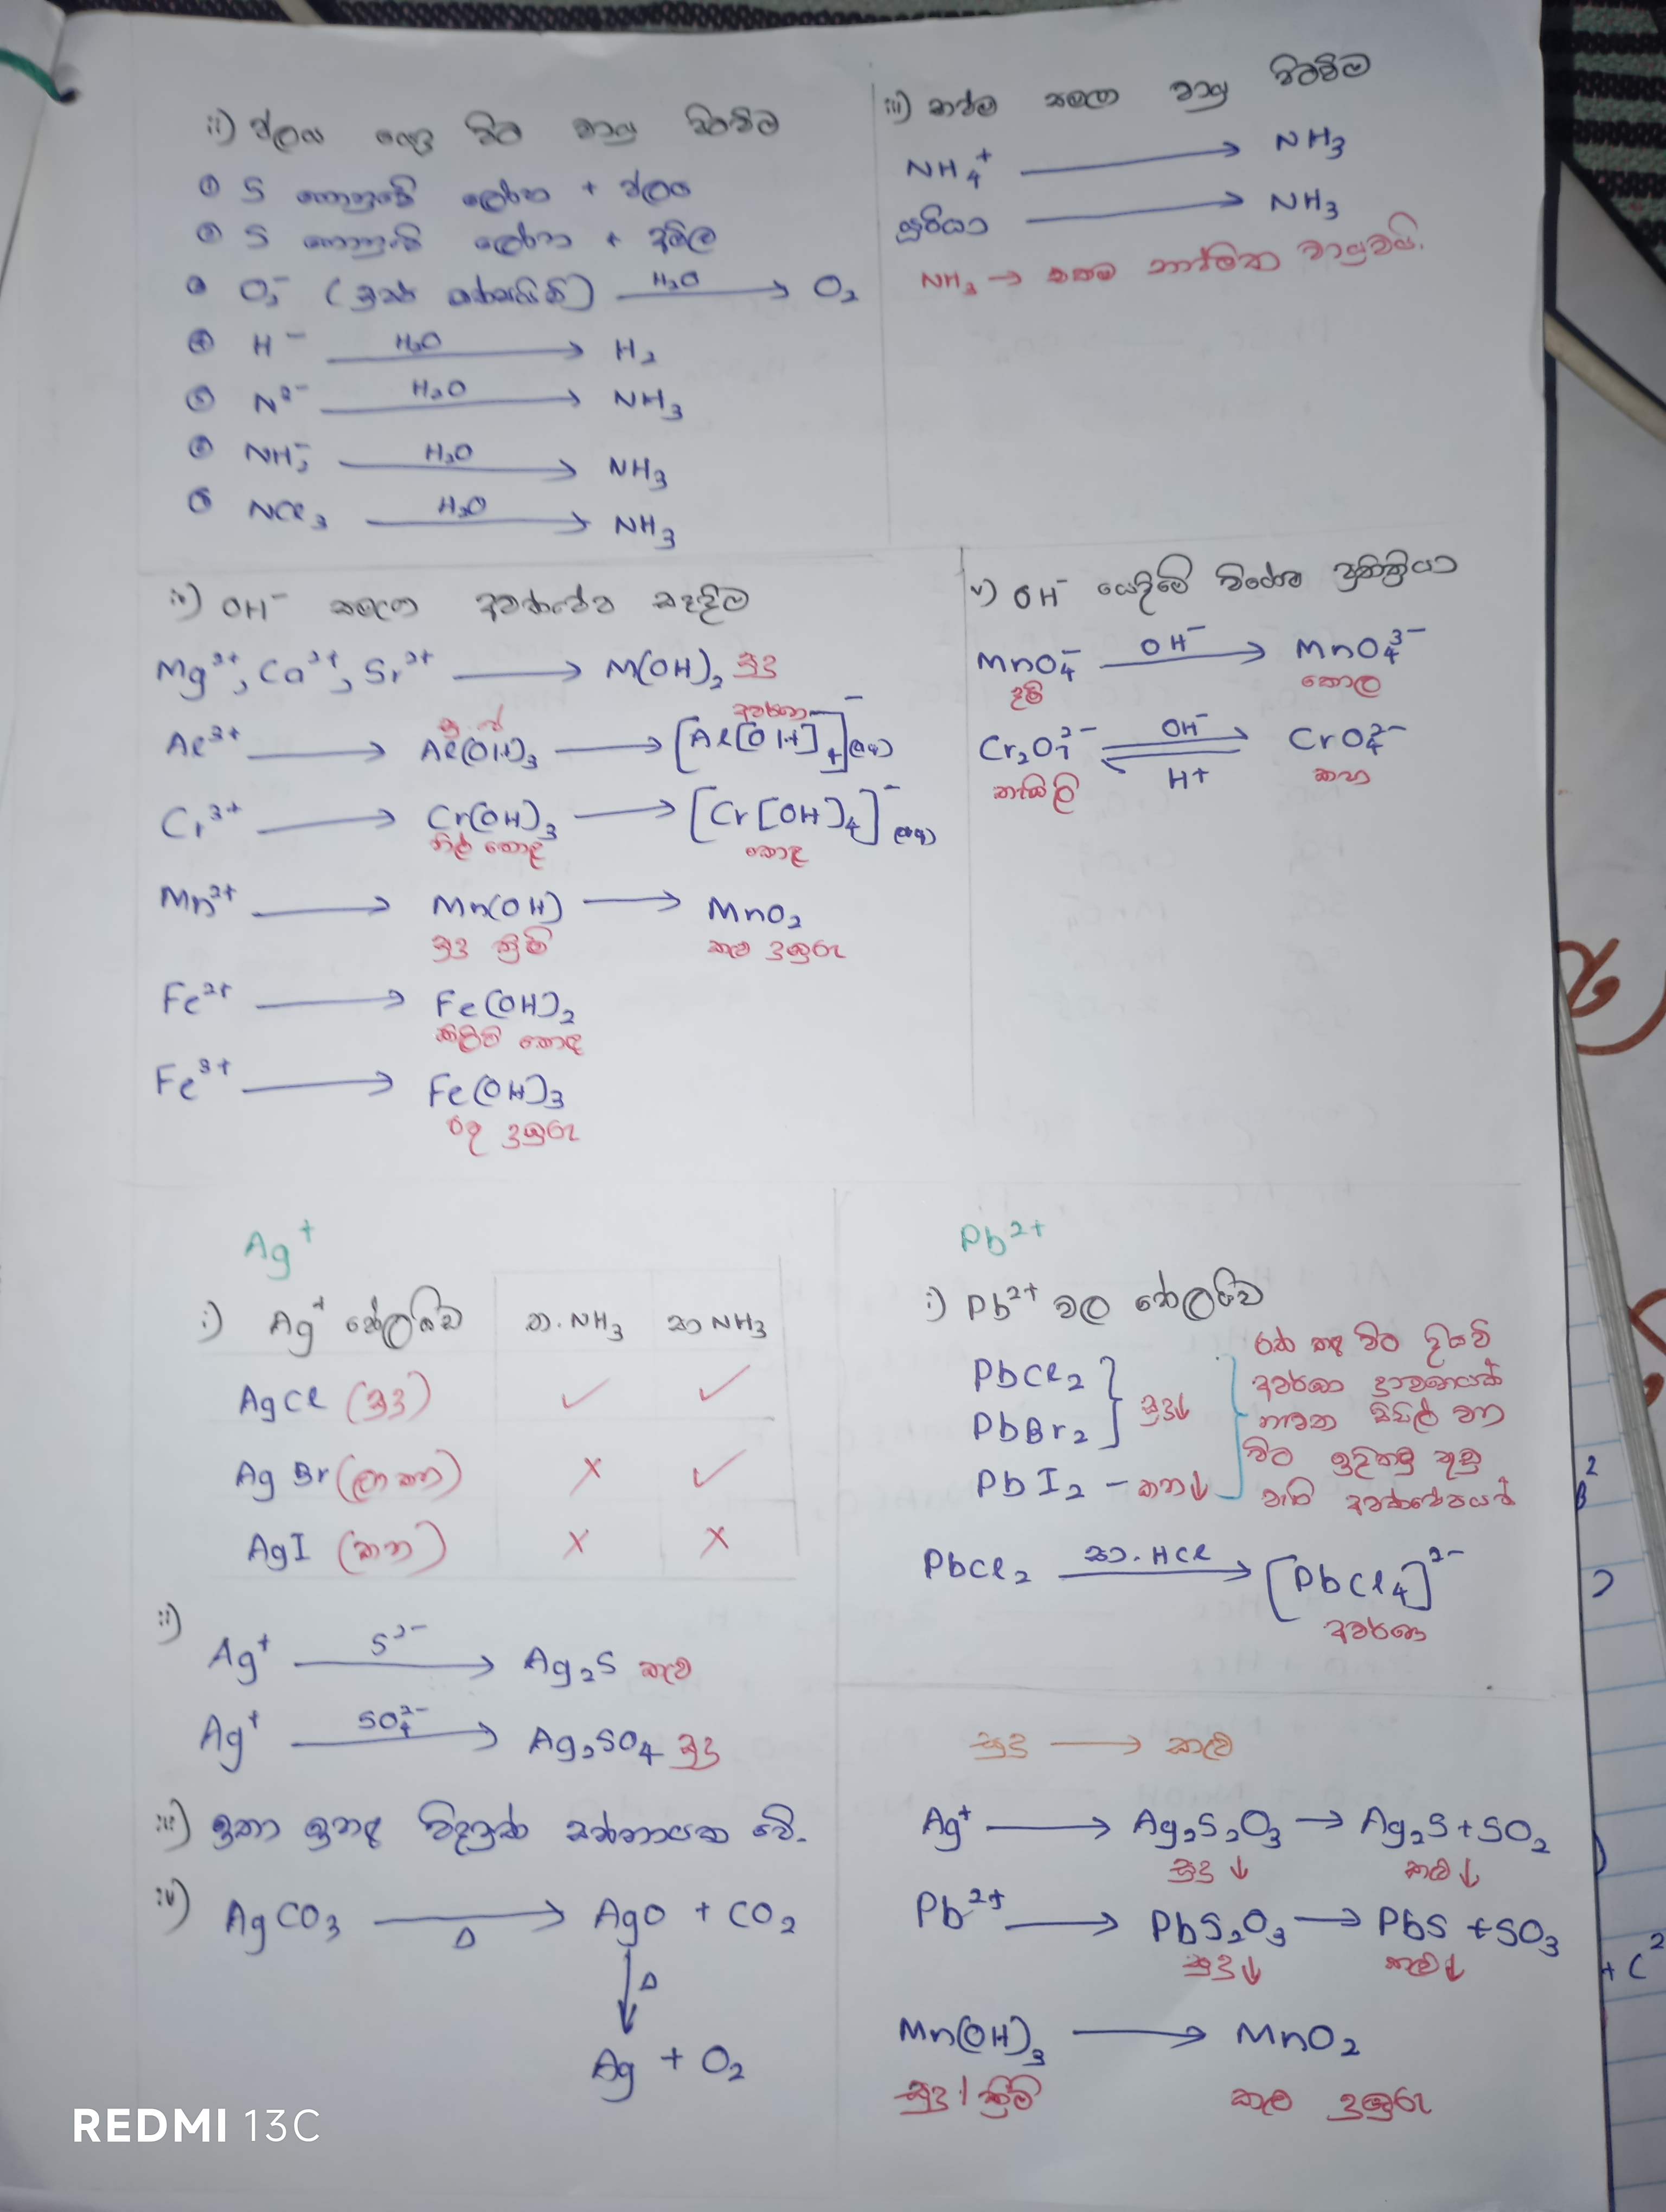 ii) ජලය යෙදූ විට වායු පිටවීම
① S නොවූ ලෝහ + ජලය
② S ලෝහ + අම්ල
③ O₂⁻ ( ) H₂O → O₂
④ H⁻ H₂O → H₂
⑤ N³⁻ H₂O → NH₃
⑥ NH₂⁻ H₂O → NH₃
⑦ NCl₃ H₂O → NH₃
iii) භෂ්ම සමඟ වායු පිටවීම
NH₄⁺ → NH₃
යූරියා → NH₃
NH₃ → එකම භාෂ්මික වායුවයි.
iv) OH⁻ සමඟ අවක්ෂේප සෑදීම
Mg²⁺, Ca²⁺, Sr²⁺ → M(OH)₂ සුදු
Al³⁺ → Al(OH)₃ → [Al[OH]₄]⁻(aq)
සු. ජෙ අවර්ණ
Cr³⁺ → Cr(OH)₃ → [Cr[OH]₄]⁻(aq)
නිල් කොළ කොළ
Mn²⁺ → Mn(OH) → MnO₂
සුදු ක්‍රීම් කළු දුඹුරු
Fe²⁺ → Fe(OH)₂
කිළිටි කොළ
Fe³⁺ → Fe(OH)₃
රතු දුඹුරු
v) OH⁻ යෙදීමේ විශේෂ ප්‍රතික්‍රියා
MnO₄⁻ OH⁻ → MnO₄³⁻
දම් කොළ
Cr₂O₇²⁻ OH⁻ ⇌ H+ CrO₄²⁻
තැඹිලි කහ
Ag⁺
i) Ag⁺ හේලයිඩ ත.NH₃ සා NH₃
AgCl (සුදු) ✓ ✓
AgBr (ලා කහ) ✗ ✓
AgI (කහ) ✗ ✗
ii)
Ag⁺ S²⁻ → Ag₂S කළු
Ag⁺ SO₄²⁻ → Ag₂SO₄ සුදු
iii) ඉතා ඉහළ විද්‍යුත් සන්නායක වේ.
iv) AgCO₃ Δ → AgO + CO₂
↓ Δ
Ag + O₂
Pb²⁺
i) Pb²⁺ වල හේලයිඩ
PbCl₂
PbBr₂ } සුදු↓
PbI₂ – කහ↓
රත් කළ විට දියවී
අවර්ණ ද්‍රාවණයක්
නැවත සිසිල් වන
විට ඉඳිකටු තුඩු
වැනි අවක්ෂේපයක්
PbCl₂ සා.HCl → [PbCl₄]²⁻
අවර්ණ
සුදු → කළු
Ag⁺ → Ag₂S₂O₃ → Ag₂S + SO₂
සුදු ↓ කළු ↓
Pb²⁺ → PbS₂O₃ → PbS + SO₃
සුදු ↓ කළු ↓
Mn(OH)₃ → MnO₂
සුදු / ක්‍රීම් කළු දුඹුරු
REDMI 13C